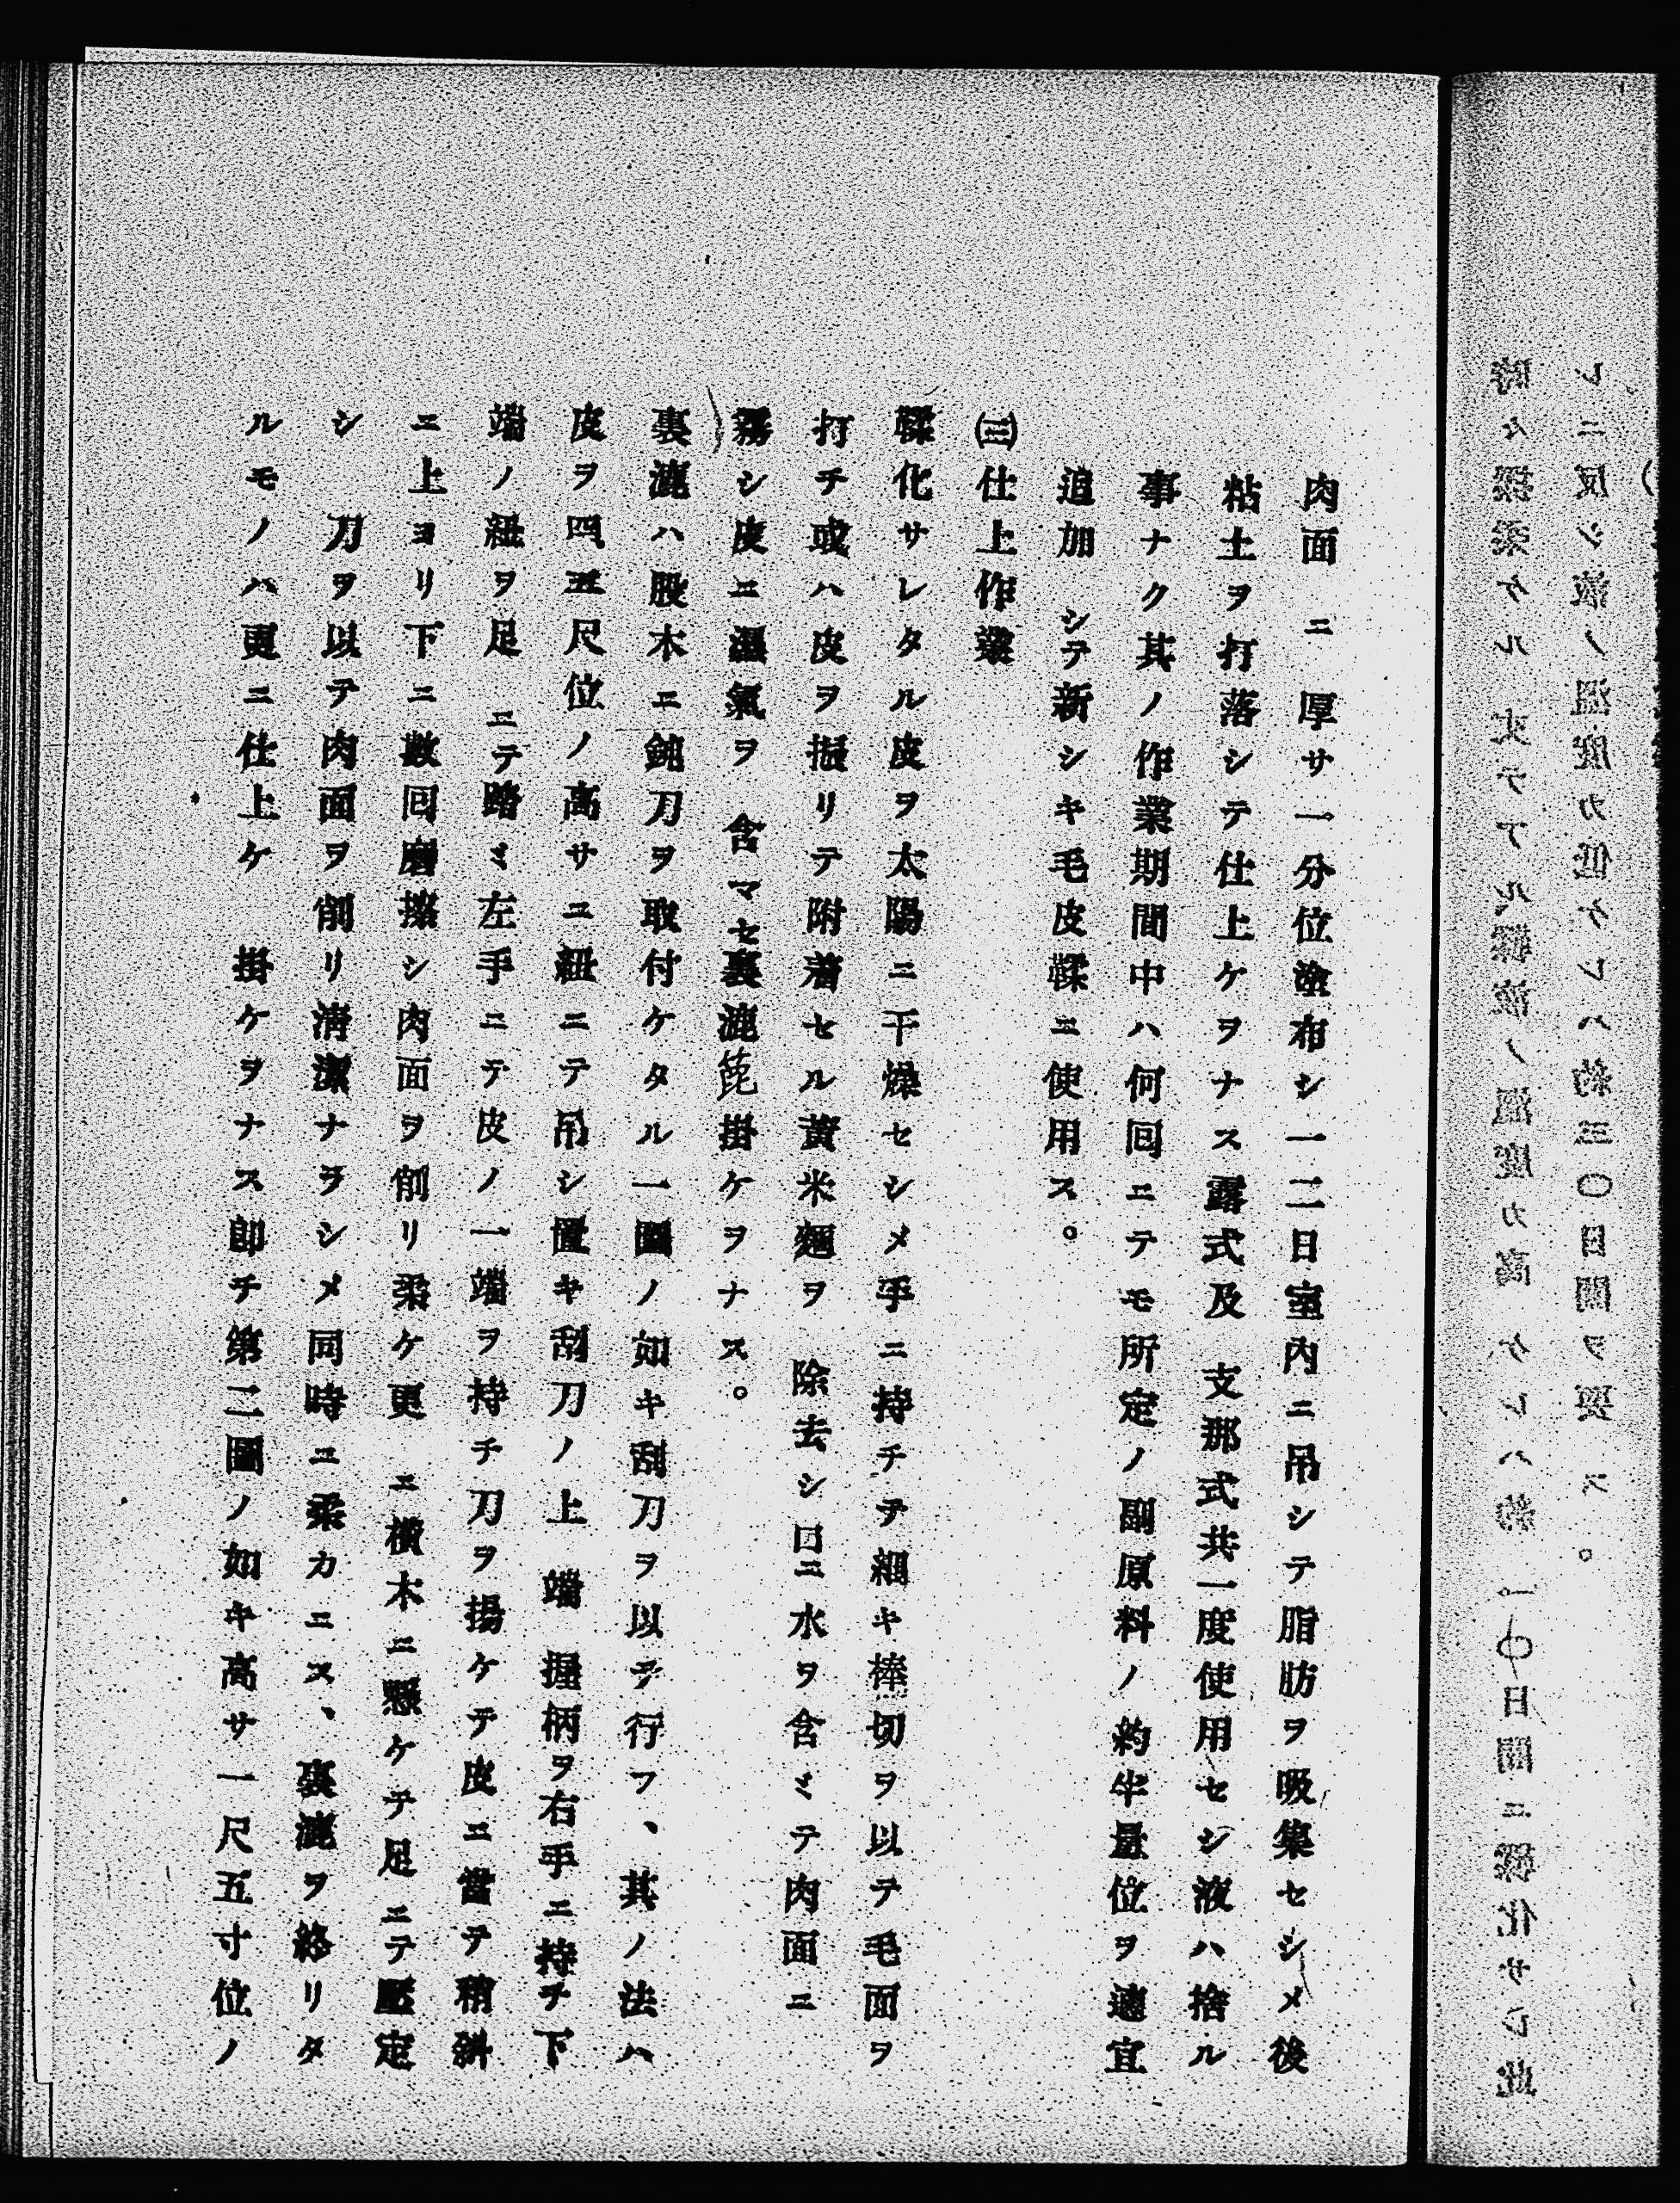 肉面ニ厚サ一分位塗布シ一二日室內ニ吊シテ脂肪ヲ吸集セシメ後
粘土ヲ打落シテ仕上ケヲナス露式及支那式共一度使用セシ液ハ捨ル
事ナク其ノ作業期間中ハ何回ニテモ所定ノ副原料ノ約半量位ヲ適宜
追加シテ新シキ毛皮鞣ニ使用ス。
㈢仕上作業
鞣化サレタル皮ヲ太陽ニ干燥セシメ手ニ持チテ細キ棒切ヲ以テ毛面ヲ
打チ或ハ皮ヲ振リテ附着セル黃米麵ヲ除去シ口ニ水ヲ含ミテ肉面ニ
霧シ皮ニ濕氣ヲ含マセ裏漉箆掛ケヲナス。
裏漉ハ股木ニ鈍刀ヲ取付ケタル一圖ノ如キ刮刀ヲ以テ行フ、其ノ法ハ
皮ヲ四五尺位ノ高サニ紐ニテ吊シ置キ刮刀ノ上端握柄ヲ右手ニ持チ下
端ノ紐ヲ足ニテ踏ミ左手ニテ皮ノ一端ヲ持チ刀ヲ揚ケテ皮ニ當テ稍斜
ニ上ヨリ下ニ數回磨擦シ肉面ヲ削リ柔ケ更ニ橫木ニ懸ケテ足ニテ壓定
シ刀ヲ以テ肉面ヲ削リ淸潔ナヲシメ同時ニ柔カニス、裏漉ヲ終リタ
ルモノハ更ニ仕上ケ掛ケヲナス卽チ第二圖ノ如キ高サ一尺五寸位ノ